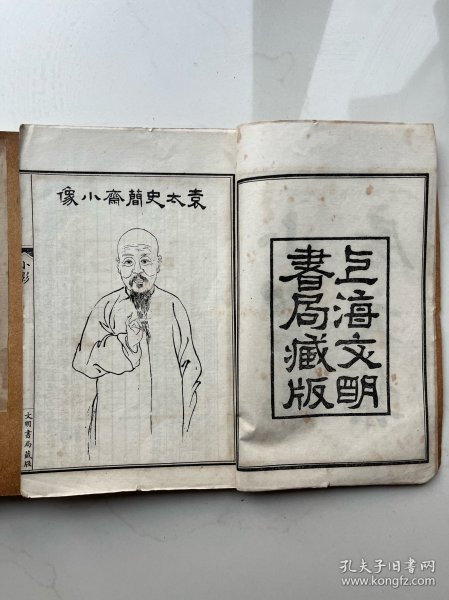 上海文明
書局藏版
袁太史簡齋小像
小影
文明書局藏版
孔夫子旧书网
www.kongfz.com